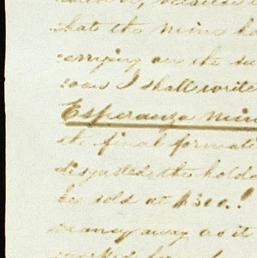 that the mine ha
carrying on the su
soon I shall write
Esperanza min
the final formati
disgusted the holde
be sold at $300.!
money away as it